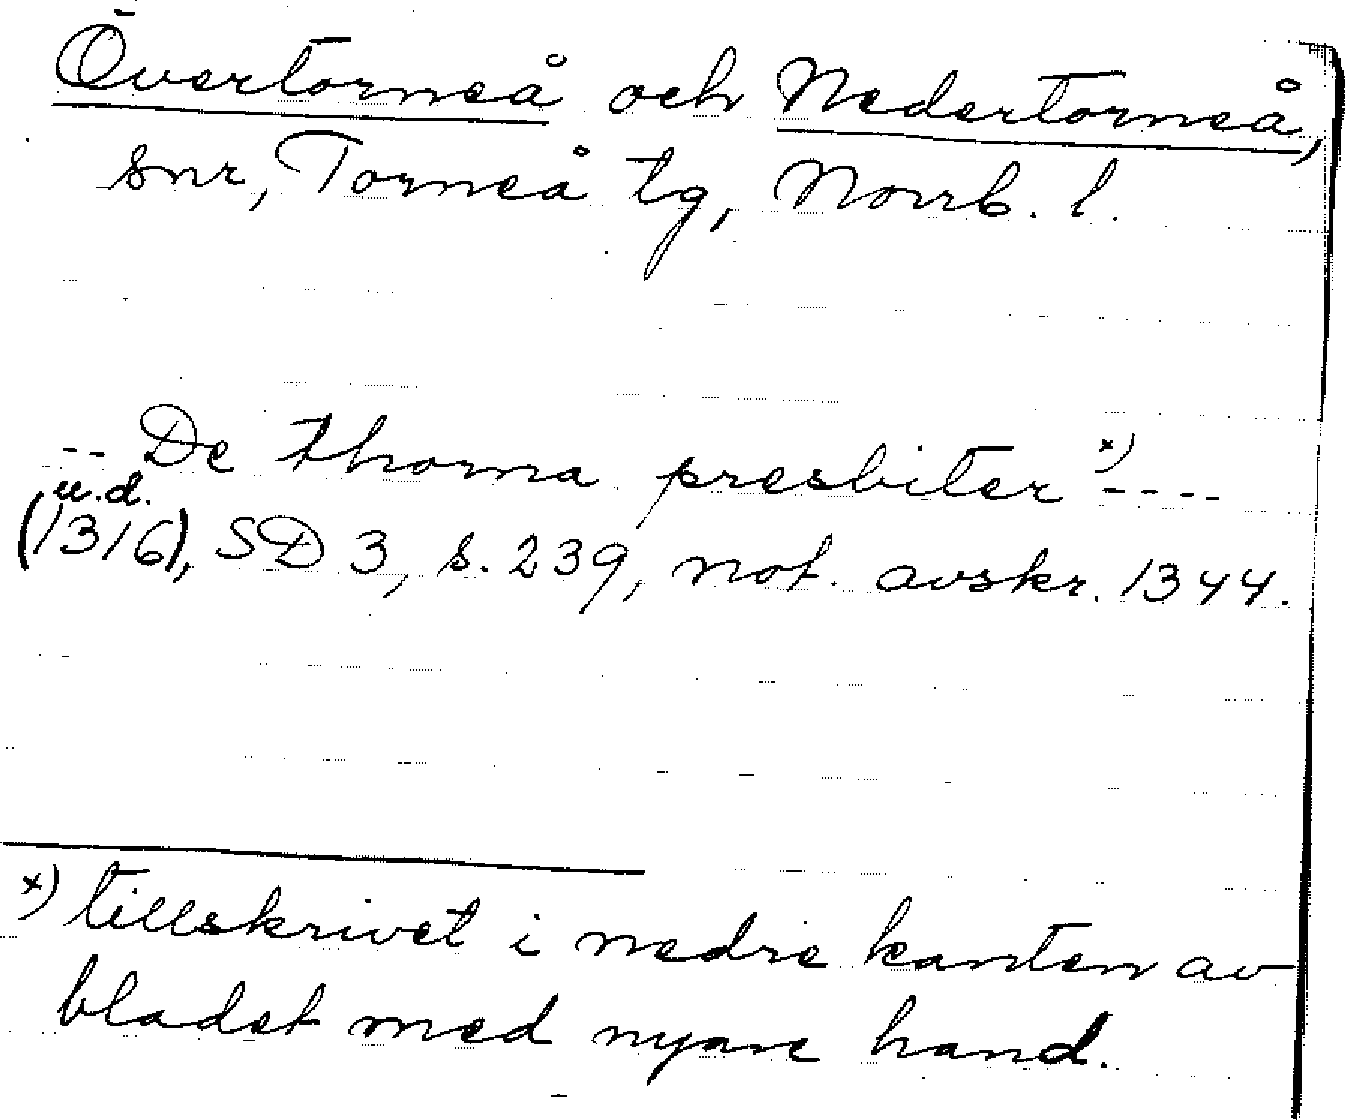 Övertorneå och Nedertorneå,
snr, Torneå tg, Norrb. l.
-- De thorna presbiter x) ----
u.d.
(1316), SD 3, s. 239, not. avskr. 1344.
x) tillskrivet i nedre kanten av
bladet med nyare hand.